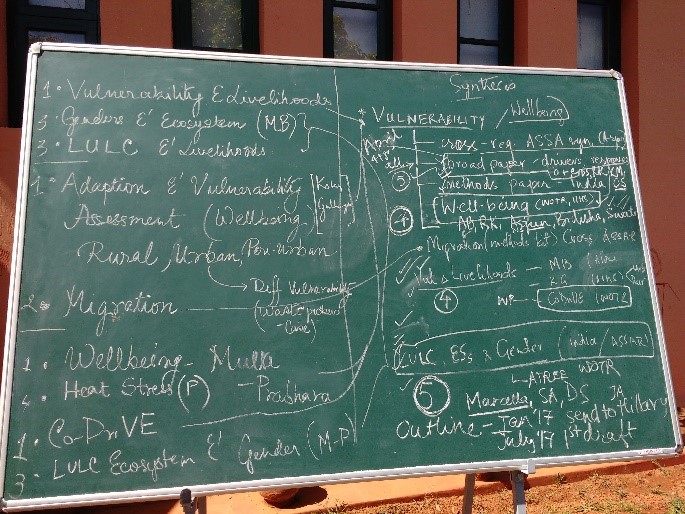 1. Vulnerability & Livelihoods
3. Genders &' Ecosystem (MB)
3. LULC &' Livelihoods
1. Adaption &' Vulnerability
Assessment (Wellbeing)
Rural, Urban, Peri-urban
→ Diff Vulnerability
2. Migration
1. Wellbeing - Mulla
4. Heat Stress (P) - Prabhara
1. Co-DriVE
3. LULC Ecosystem &' Gender (M-P)
Synthesis
* VULNERABILITY / Wellbeing
cross-reg. ASSAR syn.
broad paper - drivers, responses
③
methods paper - India
Well-being (WOTR, IIHS)
④
AB, RK,
Migration (methods bit) (cross ASSAR
& Livelihoods - MB
④
WP - CoDriVE (WOTR)
LULC, ESs & Gender (India/ASSAR)
L-ATREE WOTR
⑤ Marcella, SA, DS JA
Outline - Jan '17 send to Hillary
July '17 1st draft